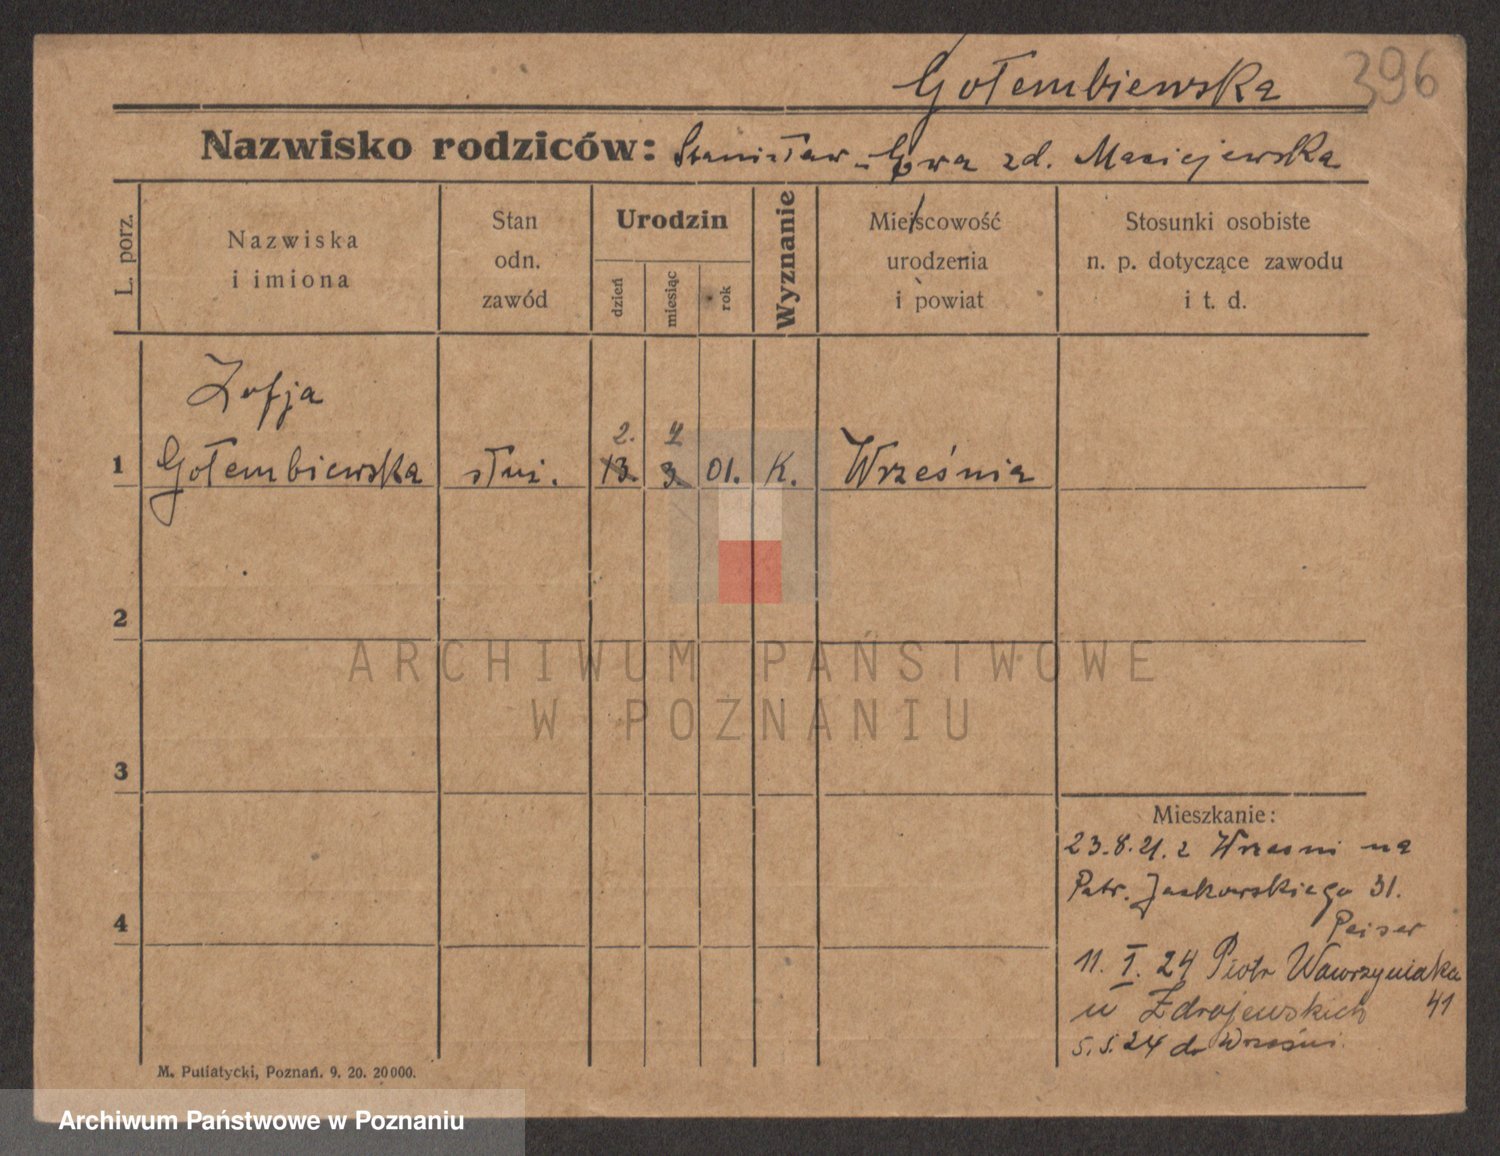 Gołembiewska 396
Nazwisko rodziców: Stanisław - Ewa zd. Maciejewska
L. porz.
Nazwiska
i imiona
Stan
odn.
zawód
Urodzin
dzień
miesiąc
rok
Wyznanie
Miejscowość
urodzenia
i powiat
Stosunki osobiste
n. p. dotyczące zawodu
i t. d.
Zofja
2. 4
1 Gołembiewska służ. 13. 3. 01. K. Września
2
3
4
Mieszkanie:
23.8.21. z Wrzesni na
Patr. Jackowskiego 31.
Peiser
11. I. 24 Piotr Wawrzyniaka
u Zdrojewskich 41
5.5.24 do Wrześni.
M. Putiatycki, Poznań. 9. 20. 20000.
ARCHIWUM PAŃSTWOWE
W POZNANIU
Archiwum Państwowe w Poznaniu